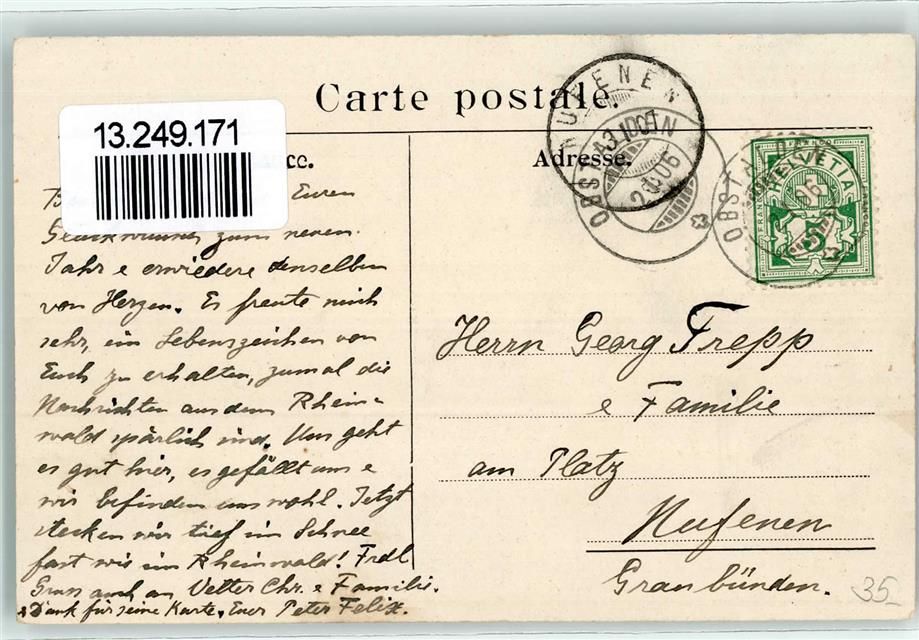 Carte postale.
13.249.171
Adresse.
Euren
Glückwunsch zum neuen
Jahr & erwiedere denselben
von Herzen. Es freute mich
sehr, ein Lebenszeichen von
Euch zu erhalten, zumal die
Nachrichten aus dem Rhein=
wald spärlich sind. Uns geht
es gut hier, es gefällt uns &
wir befinden uns wohl. Jetzt
stecken wir tief im Schnee
fast wie im Rheinwald! Frdl
Gruss auch an Vetter Chr. & Familie.
& Dank für seine Karte, Euer Peter Felix.
NUFENEN
OBSTALDEN
OBSTALDEN
HELVETIA
FRANCO
5
Herrn Georg Trepp
& Familie
am Platz
Nufenen
Graubünden.
35.-